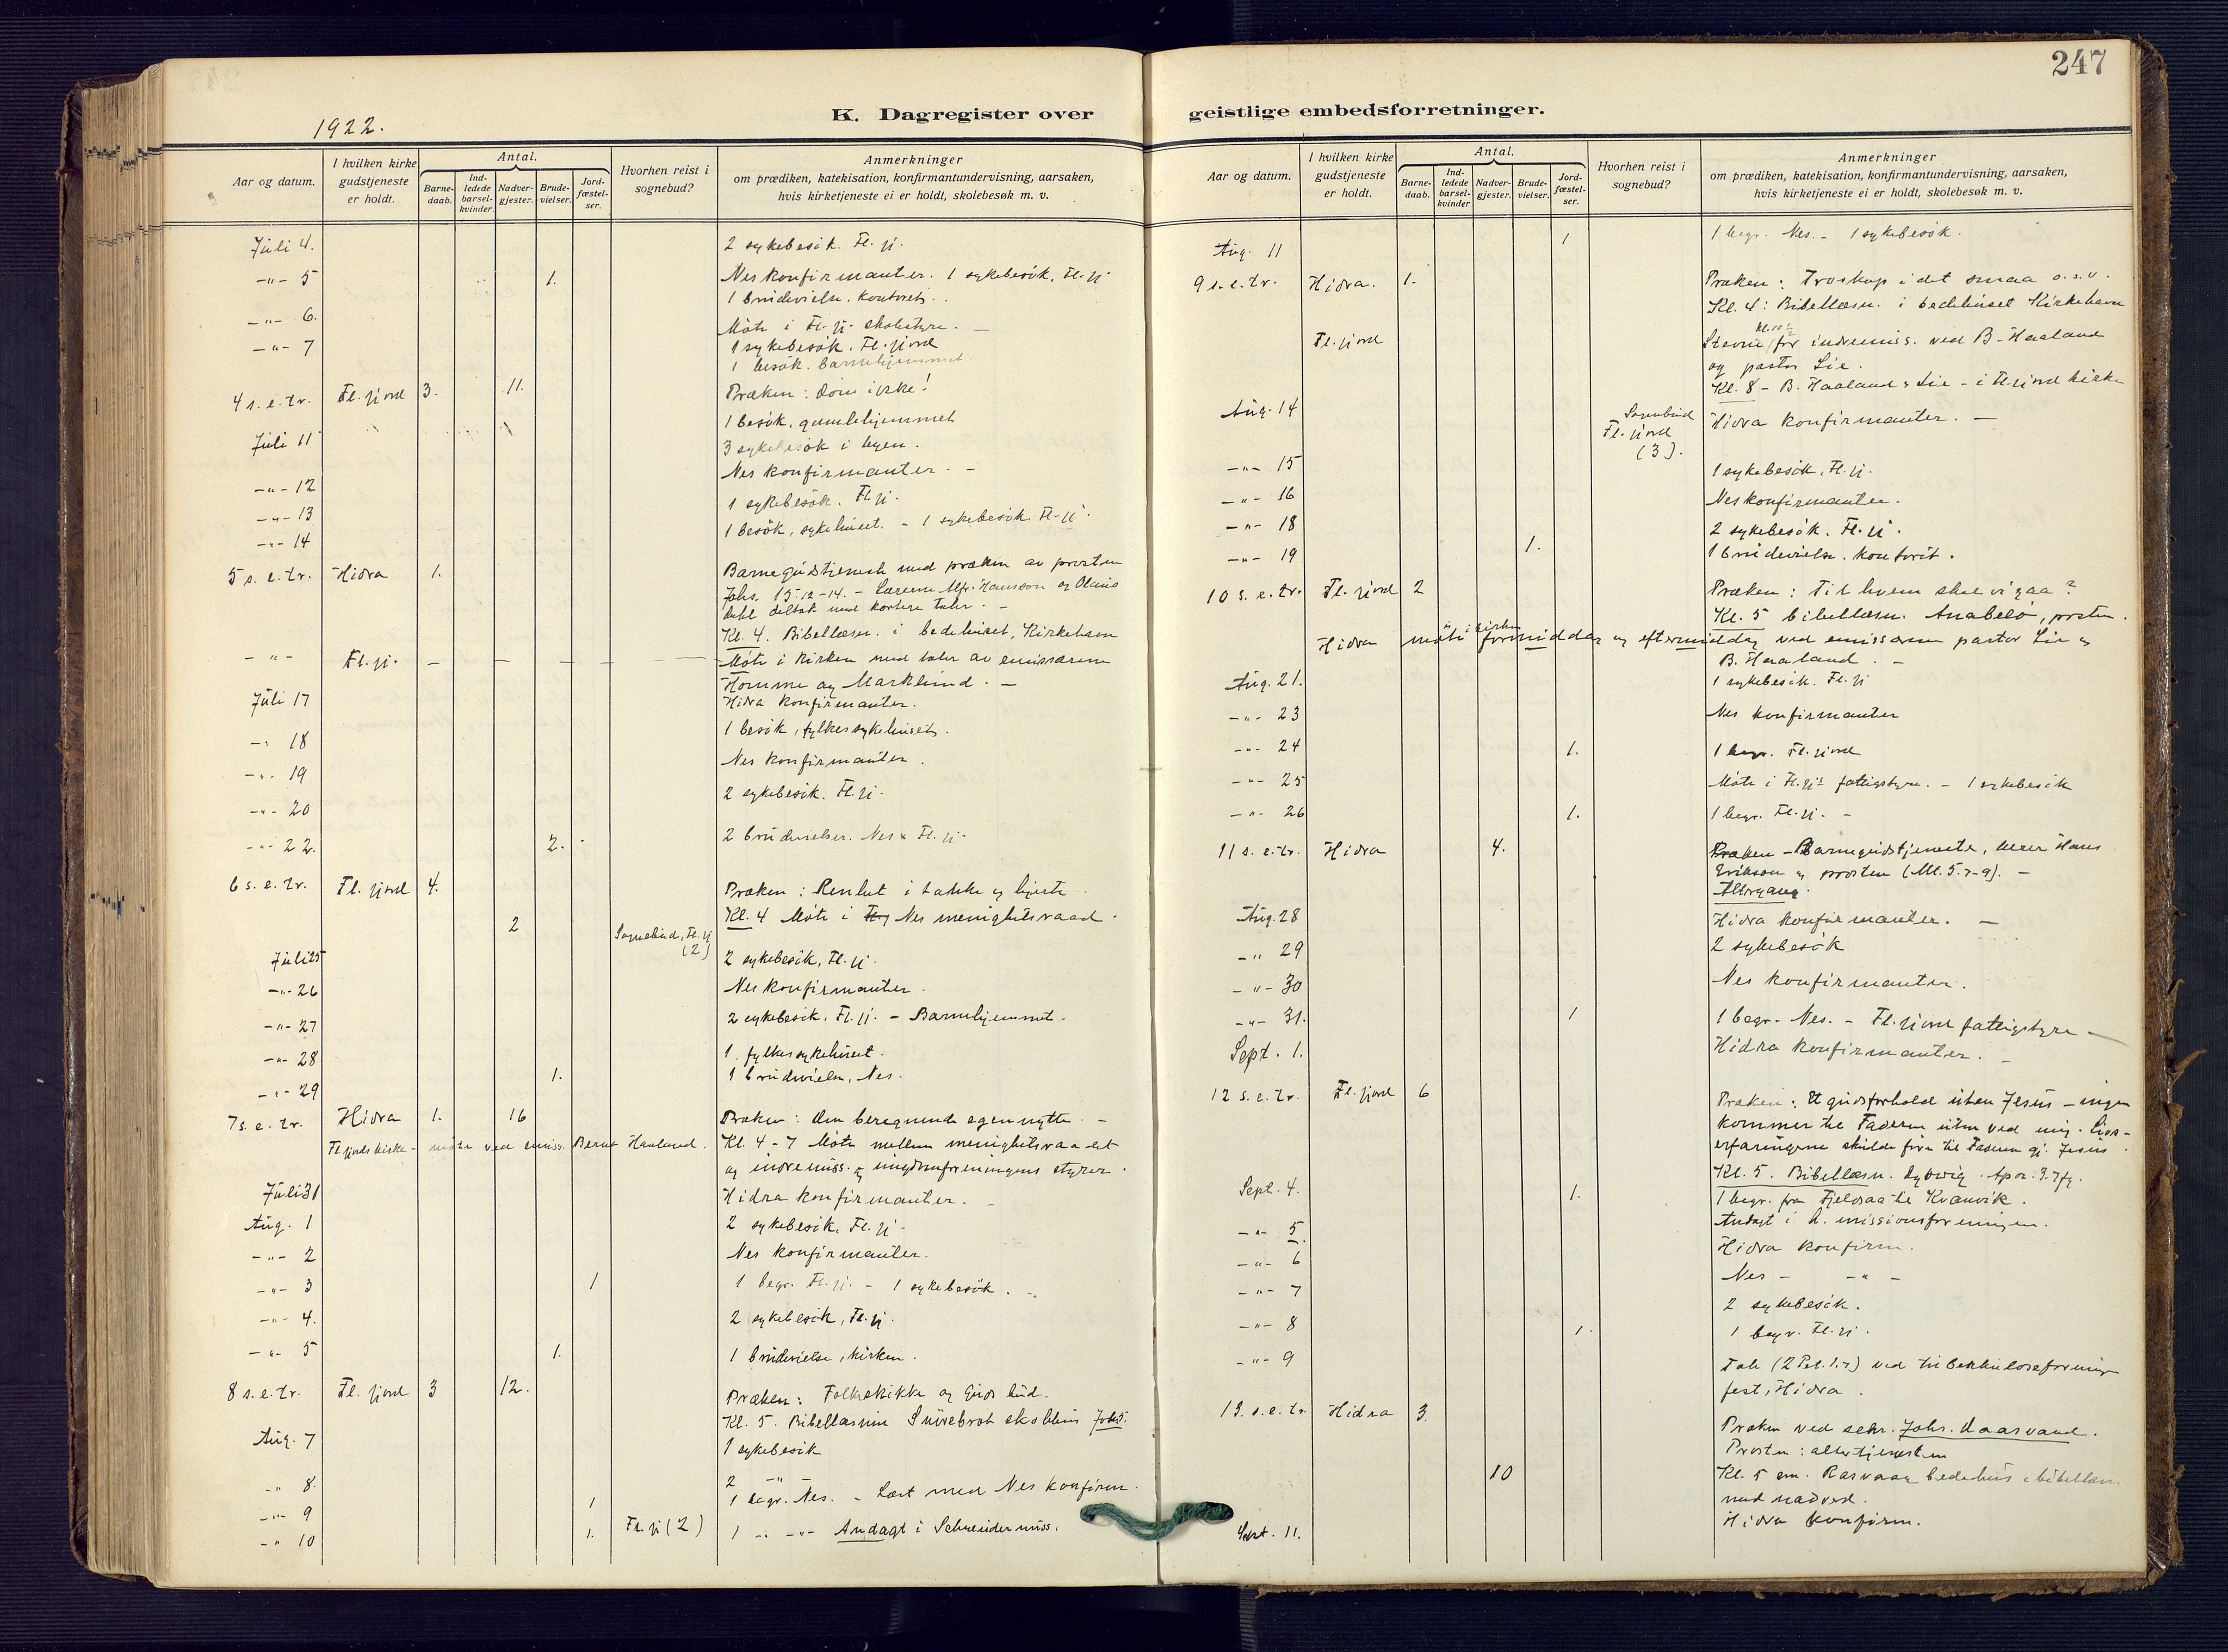 247
K. Dagregister over geistlige embedsforretninger.
1922.
Aar og datum.
I hvilken kirke gudstjeneste er holdt.
Antal.
Barne-daab.
Ind-ledede barsel-kvinder.
Nadver-gjester.
Brude-vielser.
Jord-fæstel-ser.
Hvorhen reist i sognebud?
Anmerkninger
om prædiken, katekisation, konfirmantundervisning, aarsaken,
hvis kirketjeneste ei er holdt, skolebesøk m. v.
Juli 4. 2 sykebesök. Fl. fj.
-"- 5 1. Nes konfirmanter. 1 sykebesök, Fl. fj.
1 brudevielse. kontoret.
-"- 6. Möte i Fl. fj. skolestyre. -
-"- 7 1 sykebesök. Fl. fjord
1 besök. barnehjemmet
4 s. e. tr. Fl. fjord 3. 11. Præken: Döm ikke!
1 besök, gamlehjemmet
Juli 11 3 sykebesök i byen.
Nes konfirmanter. -
-"- 12
1 sykebesök. Fl. fj.
-"- 13
1 besök, sykehuset. - 1 sykebesök Fl. fj.
-"- 14
5 s. e. tr. Hidra 1. Barnegudstjeneste med præken av prosten
Johs. 15. 12-14. - Lærerne Alfr. Hansson og Olaus
Dahl deltok med kortere taler. -
Kl. 4. Bibellæsn. i bedehuset, Kirkehavn
-"- Fl. fj. - Möte i kirken med taler av emissærene
Homme og Marklund. -
Juli 17 Hidra konfirmanter.
1 besök, fylkessykehuset.
-"- 18
Nes konfirmanter.
-"- 19
2 sykebesök. Fl. fj.
-"- 20
-"- 22. 2. 2 brudevielser. Nes & Fl. fj.
6 s. e. tr. Fl. fjord 4. Præken: Renhet i tanke og hjerte
Kl. 4 Möte i Nes menighetsraad.
2 Sognebud, Fl. fj (2)
Juli 25 2 sykebesök, Fl. fj.
-"- 26 Nes konfirmanter.
-"- 27 2 sykebesök, Fl. fj. - Barnehjemmet.
-"- 28 1. fylkessykehuset.
1. 1 brudevielse, Nes.
-"- 29
7 s. e. tr. Hidra 1. 16 Præken: Den beregnende egennytte. -
Fl. fjords kirke - möte ved emiss. Bernt Haaland. Kl. 4-7 Möte mellem menighetsraadet
og indremiss. og ungdomsforeningens styrer.
Juli 31 Hidra konfirmanter.
Aug. 1 2 sykebesök, Fl. fj.
-"- 2 Nes konfirmanter.
-"- 3 1 1 begr. Fl. fj. - 1 sykebesök. -
-"- 4. 2 sykebesök, Fl. fj.
-"- 5 1. 1 brudevielse, kirken.
8 s. e. tr. Fl. fjord 3 12. Præken: Folkeskikke og Guds bud.
Kl. 5. Bibellæsning skolehus Joh 5.
Aug. 7 1 sykebesök
-"- 8. 2 -"-
1 1 begr. Nes. - Læst med Nes konfirm.
-"- 9
1. Fl. fj (2) 1 -"- -"- Andagt i Schreuder miss.
-"- 10
Aar og datum.
I hvilken kirke gudstjeneste er holdt.
Antal.
Barne-daab.
Ind-ledede barsel-kvinder
Nadver-gjester.
Brude-vielser.
Jord-fæstel-ser.
Hvorhen reist i sognebud?
Anmerkninger
om prædiken, katekisation, konfirmantundervisning, aarsaken,
hvis kirketjeneste ei er holdt, skolebesøk m. v.
Aug. 11 1 1 begr. Nes. - 1 sykebesök.
9 s. e. tr. Hidra. 1. Præken: Troskap i det smaa o.s.v.
Kl. 4: Bibellæsn. i bedehuset Kirkehavn
Fl. fjord Stevne for indremiss. ved B. Haaland
og pastor Lie.
Kl. 8 - B. Haaland & Lie - i Fl. fjord kirke
Aug. 14 Sognebud Fl. fjord (3). Hidra konfirmanter. -
-"- 15 1 sykebesök, Fl. fj.
-"- 16 Nes konfirmanter.
-"- 18 2 sykebesök. Fl. fj.
-"- 19 1. 1 brudevielse. kontoret.
10 s. e. tr. Fl. fjord 2 Præken: Til hvem skal vi gaa?
Kl. 5 bibellæsn. Anabelö, prosten.
Hidra möte i kirken formiddag og eftermiddag ved emissæren pastor Lie og
B. Haaland. -
Aug. 21. 1 sykebesök. Fl. fj
-"- 23 Nes konfirmanter
-"- 24 1. 1 begr. Fl. fjord
-"- 25 Möte i Fl. fj's fattigstyre. - 1 sykebesök
-"- 26 1. 1 begr. Fl. fj. -
11 s. e. tr. Hidra 4. Præken - Barnegudstjeneste, lærer Hans
Erikson og prosten (Mt. 5.7-9). -
Altergang.
Aug. 28 Hidra konfirmanter. -
-"- 29 2 sykebesök
-"- 30 Nes konfirmanter.
-"- 31. 1 1 begr. Nes. - Fl. fjord fattigstyre -
Sept. 1. Hidra konfirmanter. -
12 s. e. tr. Fl. fjord 6 Præken: Et gudsforhold uten Jesus - ingen
kommer til Faderen uten ved mig. Livs-
erfaringene til Faderen gj. Jesus.
Kl. 5. Bibellæsn. Apor. 3. 7 fg.
Sept. 4. 1. 1 begr. fra Fjeldsaa til Kvanvik.
Andagt i missionsforeningen.
-"- 5. Hidra konfirm.
-"- 6 Nes - -"-
-"- 7 2 sykebesök.
-"- 8 1. 1 begr. Fl. fj.
-"- 9 Tale (2 Pet. 1.7) ved tuberkuloseforenings
fest, Hidra.
13. s. e. tr. Hidra 3. Præken ved sekr. Johs. Daasvand.
Prosten: altertjenesten
10 Kl. 5 em. Rasvaag bedehus, bibellæsn
med nadverd.
Sept. 11. Hidra konfirm.